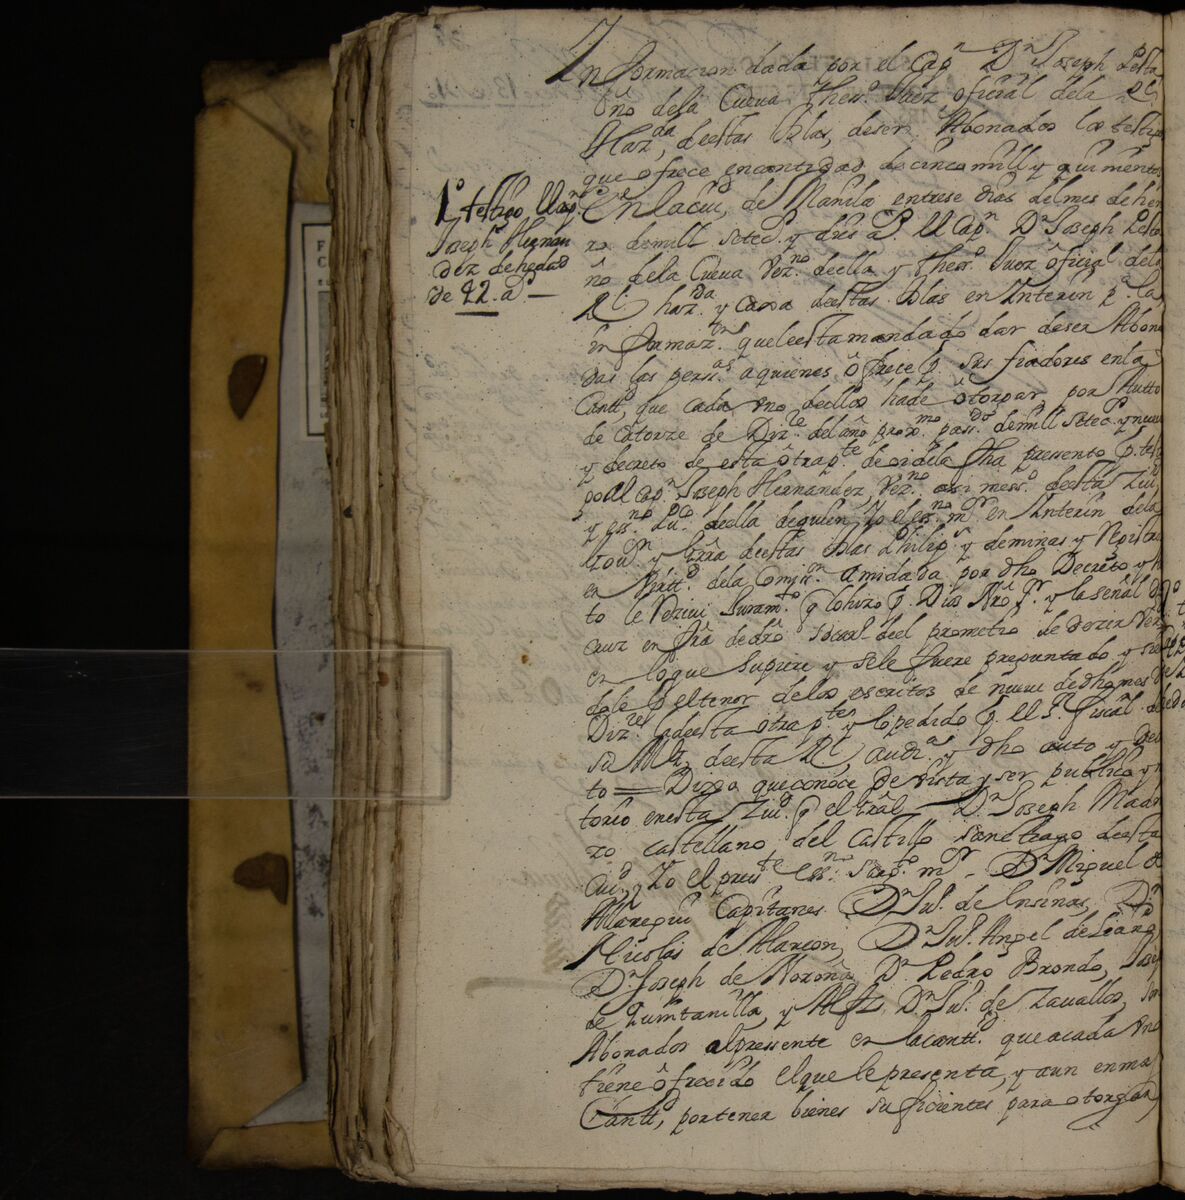 Informacion dada por el Capn Dn Joseph Pesta
ño dela Cueva Thesso Juez oficial dela Rl
Hazda, deestas Islas, deser Abonados los testigos
que ofrece encantidad de cinco mill y quinientos
1o testigo el Capn
Joseph Hernan
dez dehedad
de 42 as
En la ciud, de Manila entrese dias delmes de hene
ro demill setecs y dies as El Capn Dn Joseph Pesta
ño dela Cueva Vezno deella y thesso Juez oficial dela
Rl hazda y Caxa deestas Islas en Interin pa la
informazon queleesta mandado dar deser Abona
das las persas aquienes ofrece p sus fiadores enla
Cantd, que cada vno deellos hade otorgar, por Autto
de Catorze de Dize delaño proxmo passdo demill setecs y nueve
y decreto de esta otra pte deoidia fha pressento p testi
go al Capn Joseph Hernandez, Vezno deesta Ziud
y essno deella dequien, Yo el essno mor en Interin dela
Govn y Grra deestas Islas Philips y deminas y Registros
en Virtd dela Comisn amidada por dho Decreto y
to le Rezivi Juramto q lohizo p Dios Nro Sr y la señal dela
Cruz en fra de dro socarl deel prometio de dezir Ver
en loque supiere y sele fuere preguntado y sien
dole p eltenor delos escritos de nueve dedho mes de
Dize ladeesta otra pte y lopedido p el Sr fiscal de
su Mgd deesta Rl Auda y dho auto y Decre
to = Dixo queconoce de vista y ser publico y no
torio enesta Ziud p el Gral Dn Joseph Madr
zo castellano del Castillo Sanctiago deesta
Ciud, y Yo el press te essno sargto mor Dn Miguel de
Alaregui Capitanes Dn Jul de Insinas, Dn
Nicolas de Alarcon, Dn Jul Angel de
Dn Joseph de Noroña Dn Pedro Brondo, Josep
de Quintanilla, y Alfz Dn Ju de Zavallos, son
Abonados alpressente en lacantd queacada vno
tiene ofrecido elque lepresenta, y aun enmas
Cantd, portener bienes suficientes para otorgar,